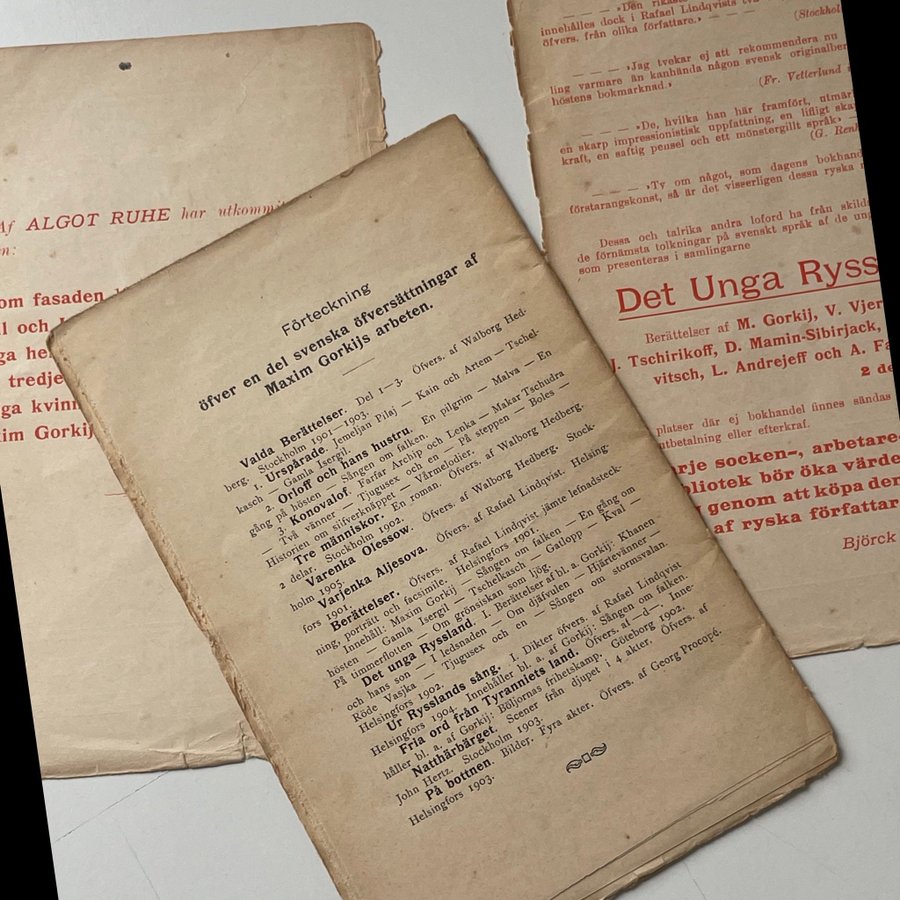 Af ALGOT RUHE har utkommit
om fasaden
l och
ga
tredje
ga kvinn
xim Gorkij
Förteckning
öfver en del svenska öfversättningar af
Maxim Gorkijs arbeten.
Valda Berättelser. Del 1—3. Öfvers. af Walborg Hed-
berg. Stockholm 1901—1903.
1. Urspårade. Jemeljan Pilaj — Kain och Artem — Tschel-
kasch — Gamla Isergil.
2. Orloff och hans hustru. En pilgrim — Malva — En
gång på hösten — Sången om falken.
3. Konovalof. Farfar Archip och Lenka — Makar Tschudra
— Två vänner — Tjugusex och en — På steppen — Boles —
Historien om silfverknäppet — Vårmelodier.
Tre människor. En roman. Öfvers. af Walborg Hedberg.
2 delar. Stockholm 1902.
Varenka Olessow. Öfvers. af Walborg Hedberg. Stock-
holm 1905.
Varjenka Aljesova. Öfvers. af Rafael Lindqvist. Helsing-
fors 1901.
Berättelser. Öfvers. af Rafael Lindqvist jämte lefnadsteck-
ning, porträtt och facsimile. Helsingfors 1901.
Innehåll: Maxim Gorkij — Sången om falken — En gång om
hösten — Gamla Isergil — Tschelkasch — Gallopp — Kval —
På timmerflotten — Om grönsiskan som ljög.
Det unga Ryssland. I. Berättelser af bl. a. Gorkij: Khanen
och hans son — I ledsnaden — Om djäfvulen — Hjärtevänner —
Röde Vasjka — Tjugusex och en — Sången om stormsvalan.
Helsingfors 1902.
Ur Rysslands sång. I. Dikter öfvers. af Rafael Lindqvist
Helsingfors 1904. Innehåller bl. a. af Gorkij: Sången om falken.
Fria ord från Tyranniets land. Öfvers. af —d—. Inne-
håller bl. a. af Gorkij: Böljornas frihetskamp. Göteborg 1902.
Natthärbärget. Scener från djupet i 4 akter. Öfvers. af
John Hertz. Stockholm 1903.
På bottnen. Bilder. Fyra akter. Öfvers. af Georg Procopé.
Helsingfors 1903.
— — — »Den
innehålles dock i Rafael Lindqvists två
öfvers. från olika författare.» — — —
(Stockhol
— — — »Jag tvekar ej att rekommendera nu
ling varmare än kanhända någon svensk originalber
höstens bokmarknad.»
(Fr. Vetterlund
— — — »De, hvilka han här framfört, utmär
en skarp impressionistisk uppfattning, en lifligt ska
kraft, en saftig pensel och ett mönstergillt språk»
(G. Renh
— — — »Ty om något, som dagens bokhand
förstarangskonst, så är det visserligen dessa ryska
Dessa och talrika andra loford ha från skild
de förnämsta tolkningar på svenskt språk af de ung
som presenteras i samlingarne
Det Unga Ryss
Berättelser af M. Gorkij, V. Vjer
J. Tschirikoff, D. Mamin-Sibirjack,
vitsch, L. Andrejeff och A. Fa
2 de
platser där ej bokhandel finnes sändas
ntbetalning eller efterkraf.
arje socken-, arbetare
bliotek bör öka värde
genom att köpa der
af ryska författar
Björck